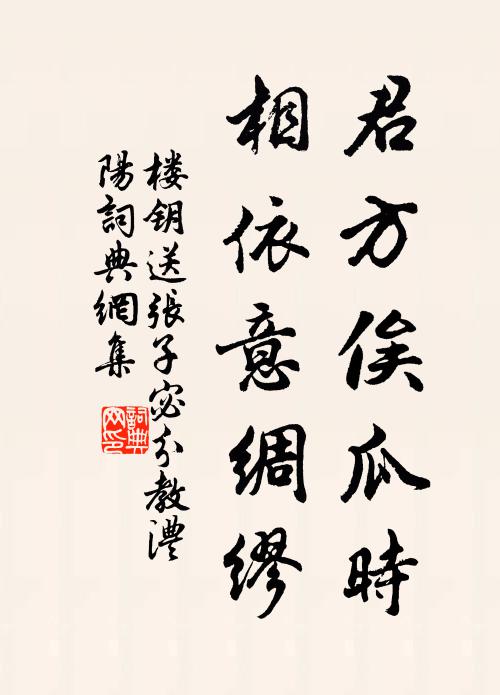 君方俟瓜時
相依意綢繆
楼钥送張子宓分教澧
陽詞典網集
詞典网印